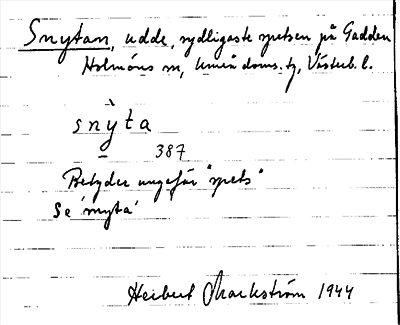 Snytan, udde, sydligaste spetsen på Gadden
Holmöns sn, Umeå doms. tg, Västerb. l.
snỳta
387
Betyder ungefär "spets"
Se 'snyta'
Herbert Markström 1944